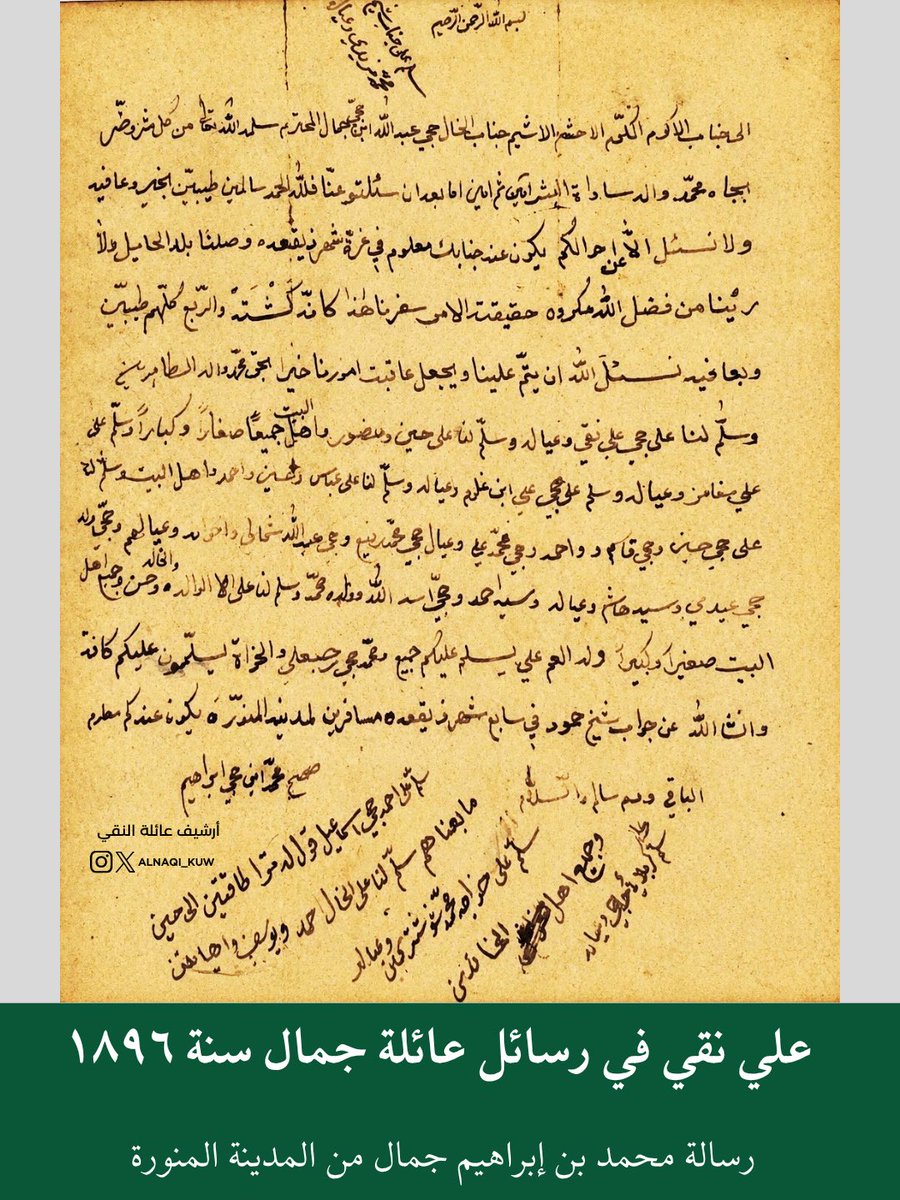 بسم الله الرحمن الرحيم
سلم على جناب
الى جناب الاكرم المكرم الاحشم الاشيم جناب الخال حجي عبد الله ابن حجي جمال المحترم سلمه الله تعالى من كل شر وضر
بجاه محمد واله سادات البشر امين ثم امين اما بعد ان سئلتو عنا فلله الحمد سالمين طيبين بخير وعافيه
ولا نسئل الا عن احوالكم يكون عند جنابك معلوم في غرة شهر ذيقعده وصلنا بلد الحايل ولا
رئينا من فضل الله مكروه حقيقت الامر سفرنا هذا كانه كشته والربع كلهم طيبين
وبعافيه نسئل الله ان يتم علينا ويجعل عاقبت امورنا خيرا بحق محمد واله الطاهرين
وسلم لنا على حجي علي نقي وعياله وسلم لنا على حسين ومنصور واهل البيت جميعا صغارا وكبارا وسلم على
علي وعياله وسلم على حجي علي ابن غلوم وعياله وسلم لنا على عباس وحسين واحمد واهل البيت وسلم لنا
على حجي حسين وحجي قاسم واحمد وحجي محمد علي وعيال حجي محمد رفيع وحجي عبد الله واخوانه وعيالهم وحجي
حجي وسيد هاشم وعياله وسيد احمد وحجي اسد الله وولده محمد وسلم لنا على الوالده والخاله وحسن وجميع اهل
البيت صغيرا وكبيرا ولد العم علي يسلم عليكم جميع ومحمد حجي رجبعلي يسلمون عليكم كافة
وانشا الله عن جواب شيخ حمود في سابع شهر ذيقعده مسافرين لمدينه المنوره يكون عندكم معلوم
الباقي ودم سالم والسلام
صحيح محمد ابن حجي ابراهيم
سلم على احمد حجي اسماعيل قول له ترا طاقتين الى حسين
ما بعناهم سلم لنا على الخال احمد ويوسف
سلم على
وعياله
وجميع اهل
أرشيف عائلة النقي
ALNAQI_KUW
علي نقي في رسائل عائلة جمال سنة ١٨٩٦
رسالة محمد بن إبراهيم جمال من المدينة المنورة